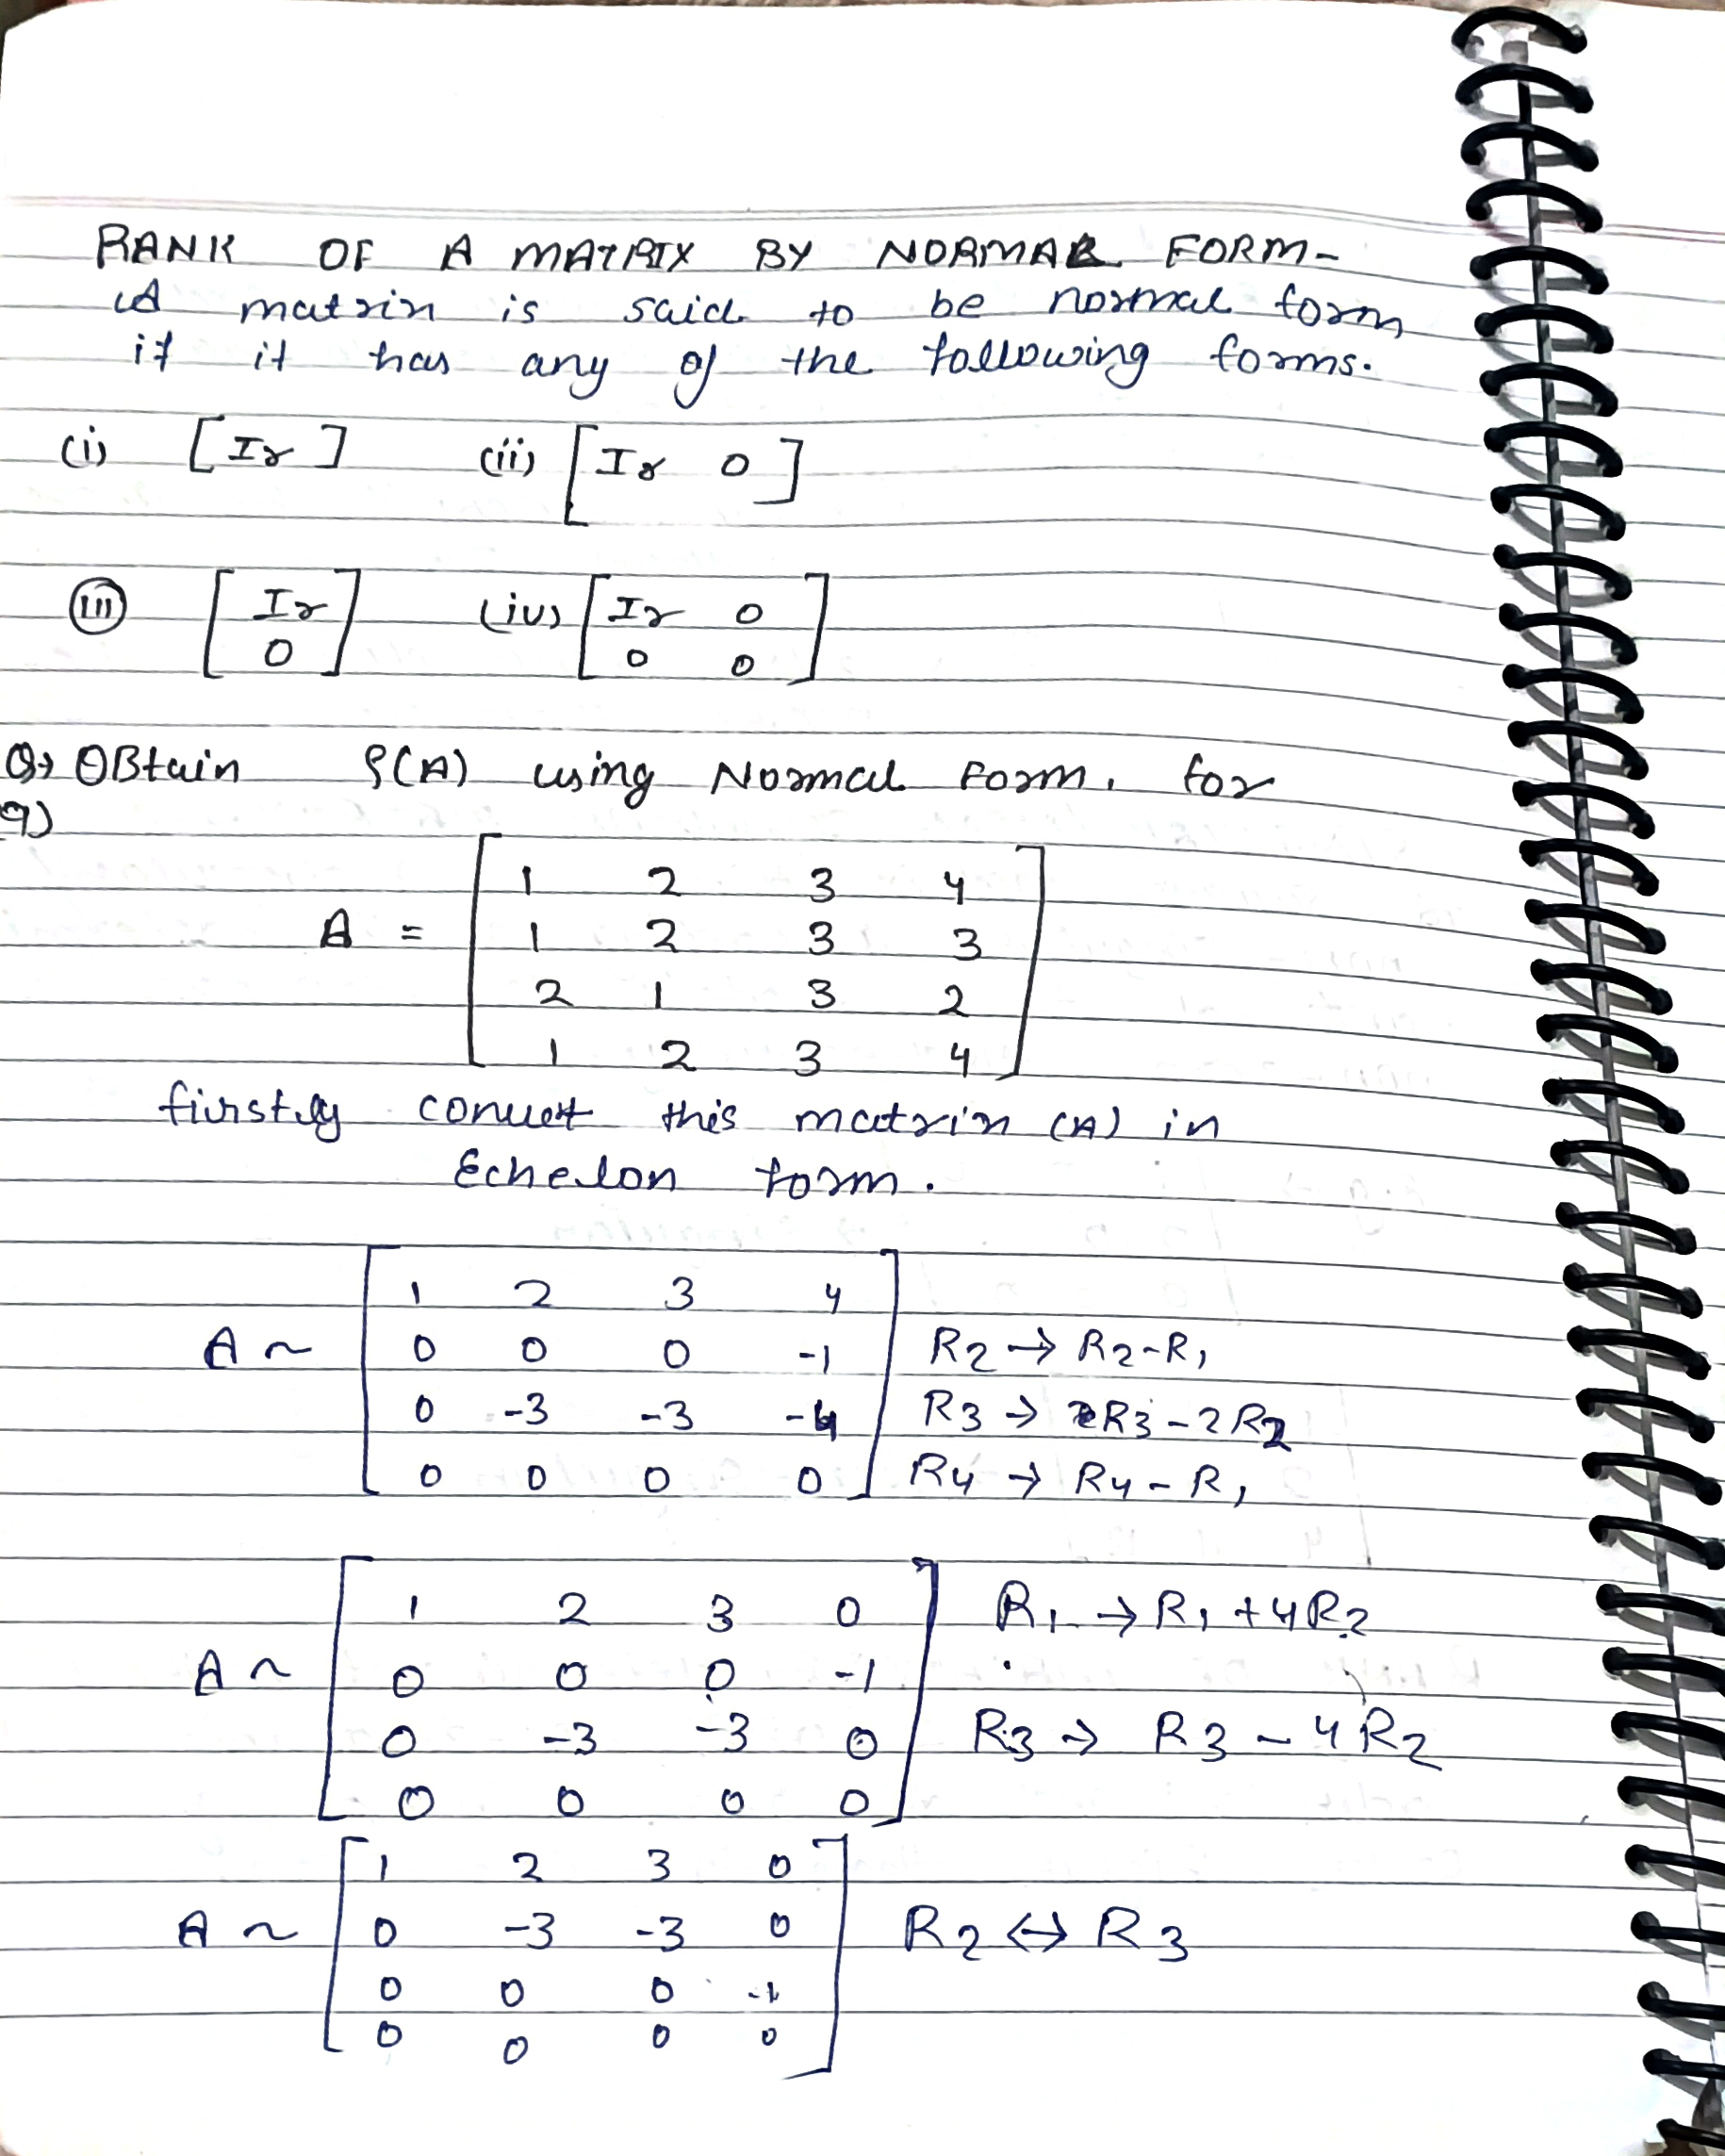 RANK OF A MATRIX BY NORMAL FORM-
A matrix is said to be normal form
if it has any of the following forms.
(i) [Ir] (ii) [Ir 0]
(iii) [Ir (iv) [Ir 0
0] 0 0]
Q→ OBtain ρ(A) using Normal Form, for
9)
1 2 3 4
A = 1 2 3 3
2 1 3 2
1 2 3 4
firstly convert this matrix (A) in
Echelon form.
1 2 3 4
A ~ 0 0 0 -1 R2 → R2-R1
0 -3 -3 -4 R3 → R3-2R2
0 0 0 0 R4 → R4-R1
1 2 3 0 R1 → R1+4R2
A ~ 0 0 0 -1
0 -3 -3 0 R3 → R3-4R2
0 0 0 0
1 2 3 0
A ~ 0 -3 -3 0 R2 ↔ R3
0 0 0 -1
0 0 0 0